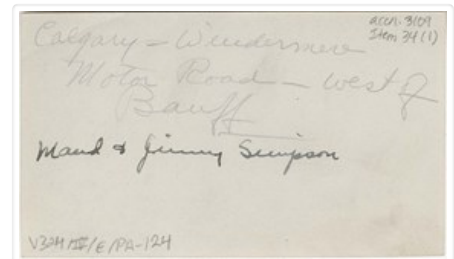 accn. 3109
Item 34 (1)
Calgary - Windermere
Motor Road - west of
Banff
Maud & Jimmy Simpson
V344/IV/E/PA-124